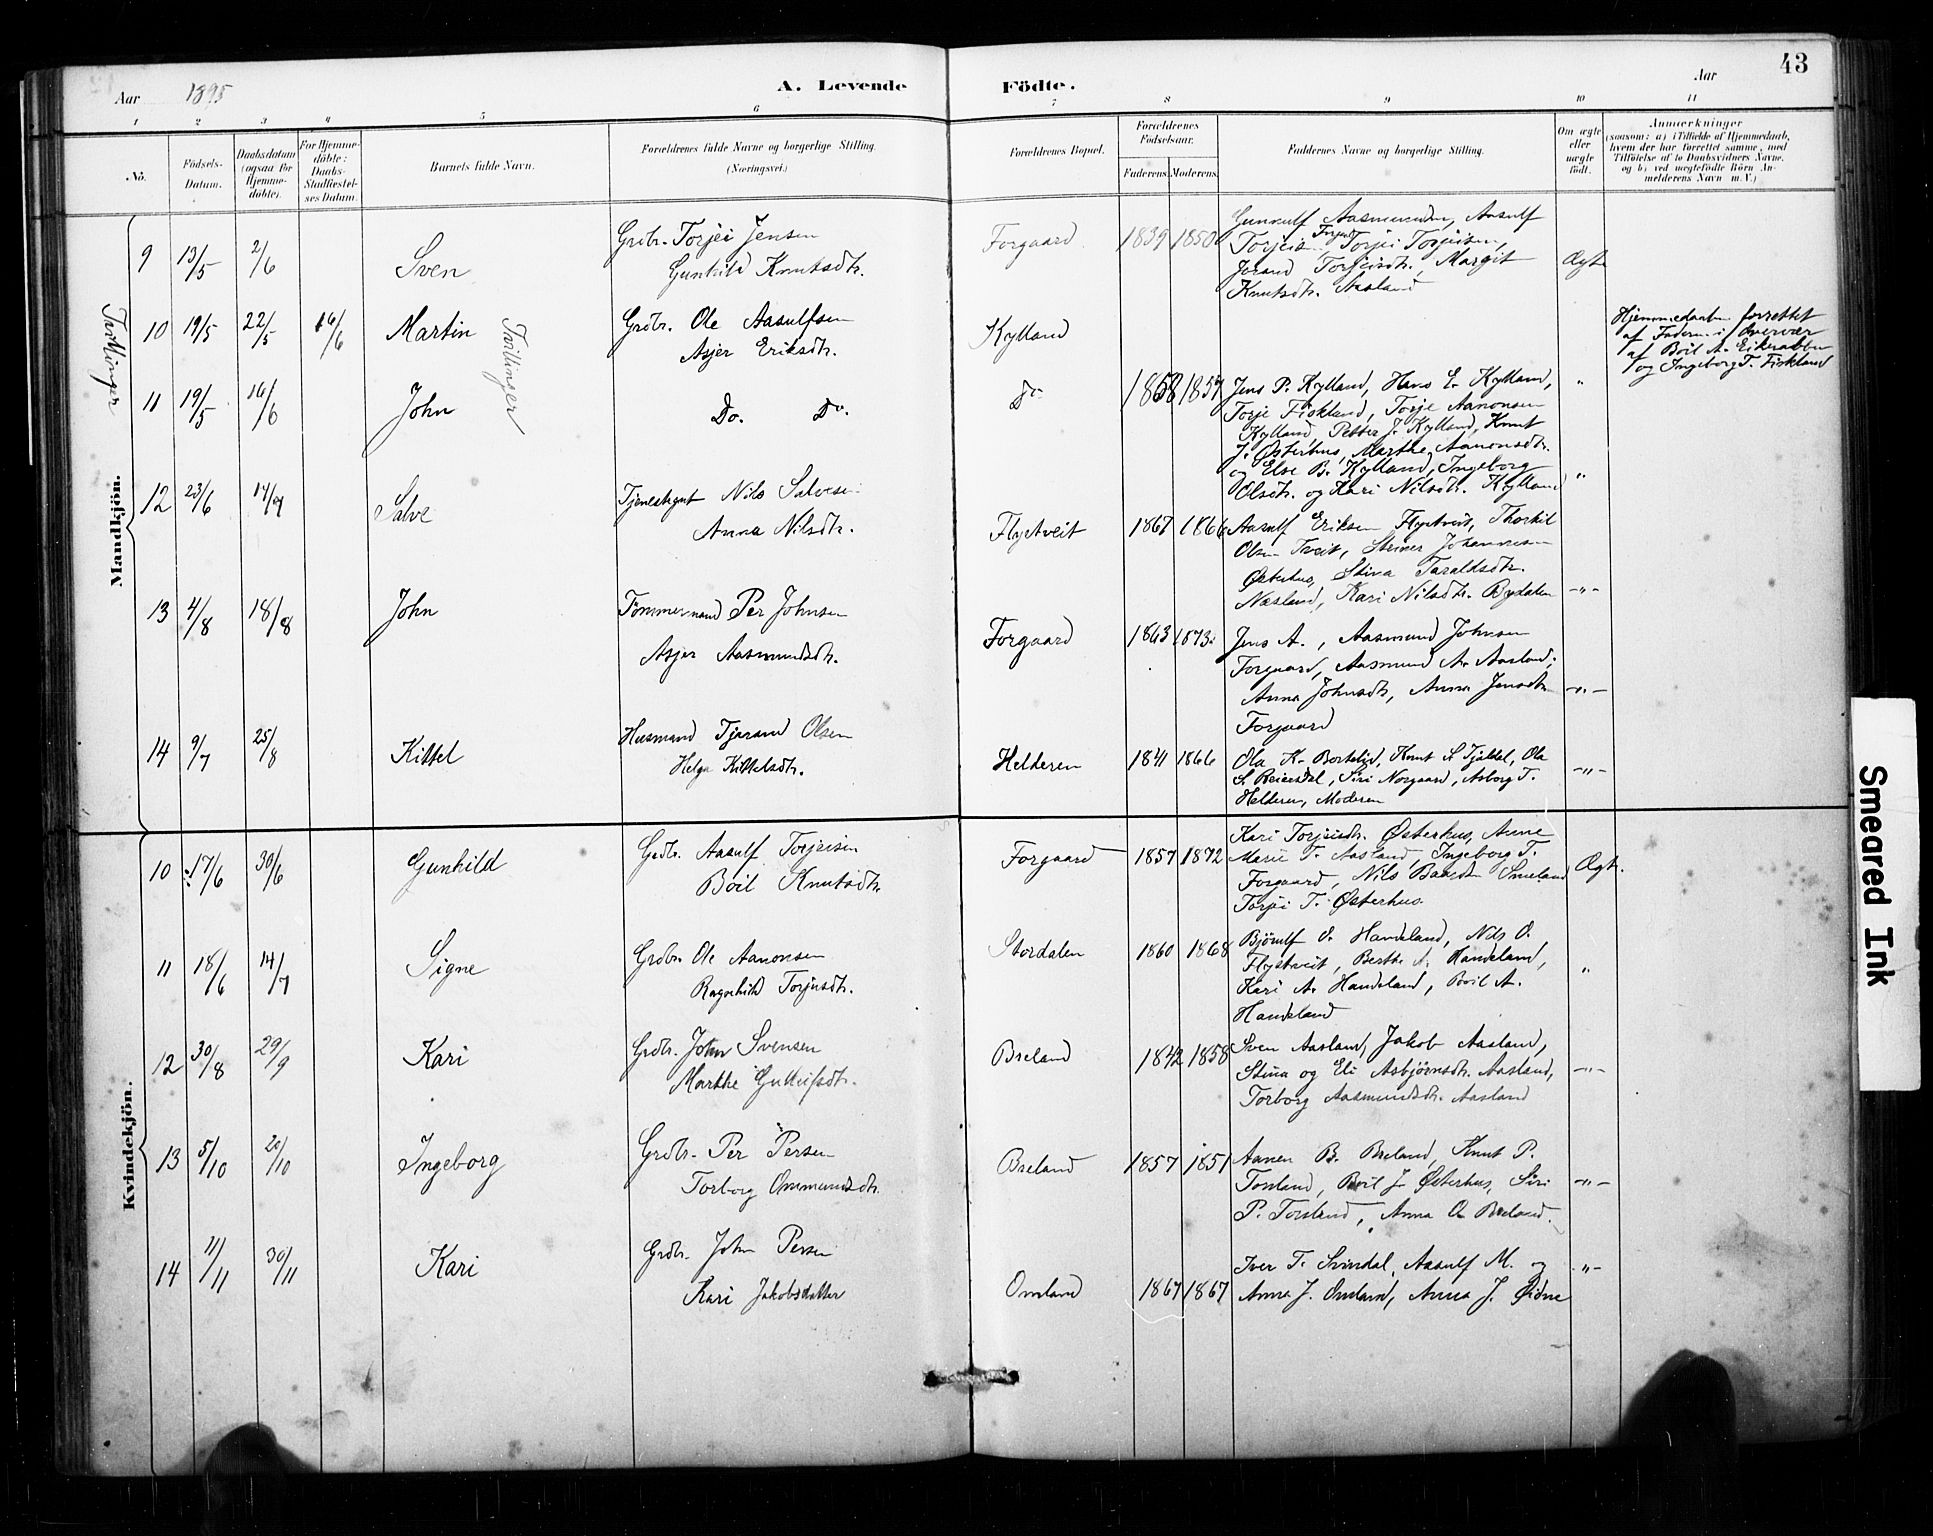 43
Aar 1895 A. Levende Födte. Aar
1 2 3 4 5 6 7 8 9 10 11
No.
Födsels-Datum.
Daabsdatum (ogsaa for Hjemme-döbte).
For Hjemme-döbte: Daabs-Stadfæstel-ses Datum.
Barnets fulde Navn.
Forældrenes fulde Navne og borgerlige Stilling.
(Næringsvei.)
Forældrenes Bopæl.
Forældrenes Födselsaar.
Faderens. Moderens.
Faddernes Navne og borgerlige Stilling.
Om ægte eller uægte födt.
Anmærkninger
(saasom: a) i Tilfælde af Hjemmedaab,
hvem der har forrettet samme, med
Tilföielse af to Daabsvidners Navne,
og b) ved uægtefödte Börn An-
melderens Navn m. V.)
Mandkjön.
9 13/5 2/6 Sven Grdbr. Torjei Jensen Forgaard 1839 1850 Gunnulf Aasmundsen, Aasulf
Gunhild Knutsdtr. Torjeisen Torjei Torjeisen,
Jorand Torjeisdtr., Margit Ægte
Knutsdtr. Aasland
Tvillinger
10 19/5 22/5 16/6 Martin Grdbr. Ole Aasulfsen Kylland
Asjer Eriksdtr.
Tvillinger
Hjemmedaaben forrettet
af Faderen i Overvær
af Boil A. Eikerabben
og Ingeborg T. Fiskland
11 19/5 16/6 John Do. Do. Do 1858 1857 Jens P. Kylland, Hans E. Kylland, "
Torje Fiskland, Torje Aanonsen
Kylland, Petter J. Kylland, Knut
J. Østerhus, Marthe Aanonsdtr.
og Else B. Kylland, Ingeborg
Olsdtr. og Kari Nilsdtr. Kylland
12 23/6 14/7 Salve Tjenestegut Nils Salvesen Flystveit 1867 1866 Aasulf Eriksen Flystveit, Thorkil "
Anna Nilsdtr. Olsen Tveit, Steiner Johannesen
Østerhus, Stina Taraldsdtr.
Næsland, Kari Nilsdtr. Bydalen
13 4/8 18/8 John Tømmermand Per Johnsen Forgaard 1863 1873 Jens A., Aasmund Johnsen -"-
Asjer Aasmundsdtr. Forgaard, Aasmund A. Aasland,
Anna Johnsdtr, Anna Jensdtr -"-
Forgaard
14 9/7 25/8 Kittel Husmand Tjerand Olsen Helderen 1841 1866 Ola K. Bortelid, Knut S. Tjaldal, Ola
Helga Kittelsdtr. S. Reiersdal, Siri Norgaard, Asborg T. -"-
Helderen, Moderen
Kvindekjön.
10 17/6 30/6 Gunhild Grdbr. Aasulf Torjeisen Forgaard 1857 1872 Kari Torjeisdtr. Østerhus, Anne
Boil Knutsdtr. Marie T. Aasland, Ingeborg T.
Forgaard, Nils Baardsen Smeland Ægte.
Torjei T. Østerhus
11 18/6 14/7 Signe Grdbr. Ole Aanonsen Stordalen 1860 1868 Bjørulf O. Handeland, Nils O.
Ragnhild Torjusdtr. Flystveit, Berthe A. Handeland, "
Kari A. Handeland, Boil A.
Handeland
12 30/8 29/9 Kari Grdbr. John Svensen Breland 1842 1858 Sven Aasland, Jakob Aasland,
Marthe Gullulfsdtr. Stina og Eli Asbjørnsdtr. Aasland, -"-
Torborg Aasmundsdtr. Aasland
13 5/10 20/10 Ingeborg Grdbr. Per Persen Breland 1857 1851 Aanen B. Breland, Knut P.
Torborg Ommundsdtr. Torsland, Boil J. Østerhus, Siri -"-
P. Torsland, Anna O. Breland.
14 11/11 30/11 Kari Grdbr. John Persen Omland 1867 1867 Iver T. Svindal, Aasulf M. og -"-
Kari Jakobsdatter Anna J. Omland, Anna J. Øidne
Smeared Ink